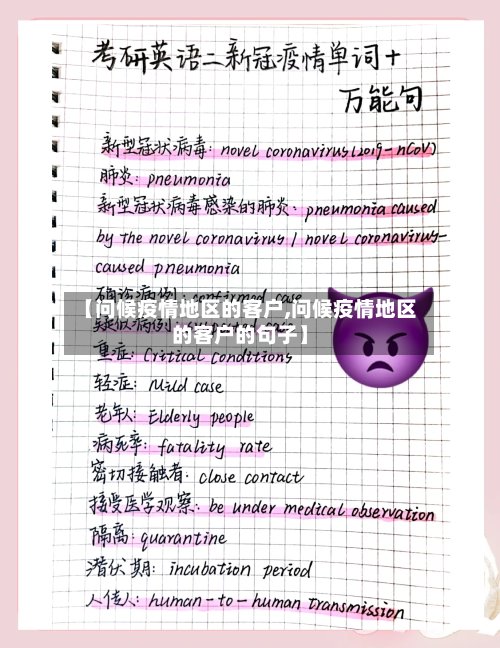 考研英语二新冠疫情单词+
万能句
新型冠状病毒：novel coronavirus(2019-nCoV)
肺炎：pneumonia
新型冠状病毒感染的肺炎：pneumonia caused
by the novel coronavirus / novel coronavirus-
caused pneumonia
确诊病例：confirmed case
【问候疫情地区的客户,问候疫情地区
疑似病例：
的客户的句子】
重症：Critical conditions
轻症：Mild case
老年人：Elderly people
病死率：fatality rate
密切接触者：close contact
接受医学观察：be under medical observation
隔离：quarantine
潜伏期：incubation period
人传人：human-to-human transmission